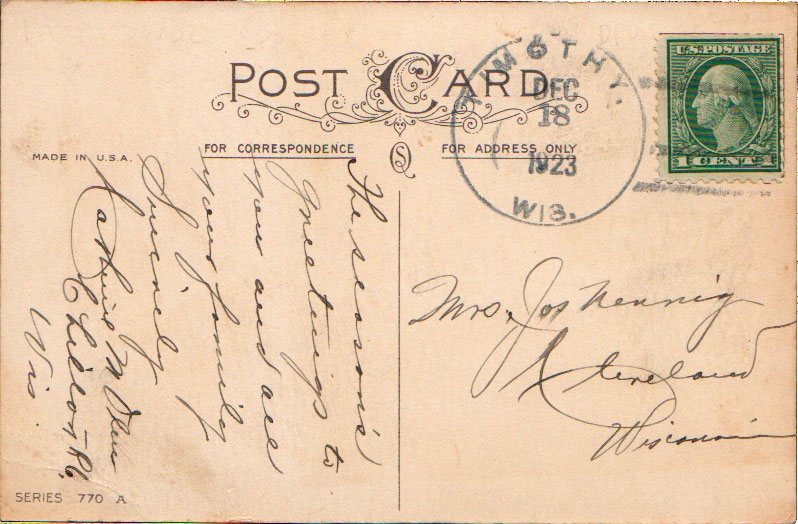 POST CARD
TIMOTHY.
DEC
18
1923
WIS.
U.S. POSTAGE
1 CENT 1
MADE IN U.S.A.
FOR CORRESPONDENCE
FOR ADDRESS ONLY
The season's
greetings to
you and all
your family
Sincerely
Chilton
Wis
Mrs. Jos Nennig
Cleveland
Wisconsin
SERIES 770 A